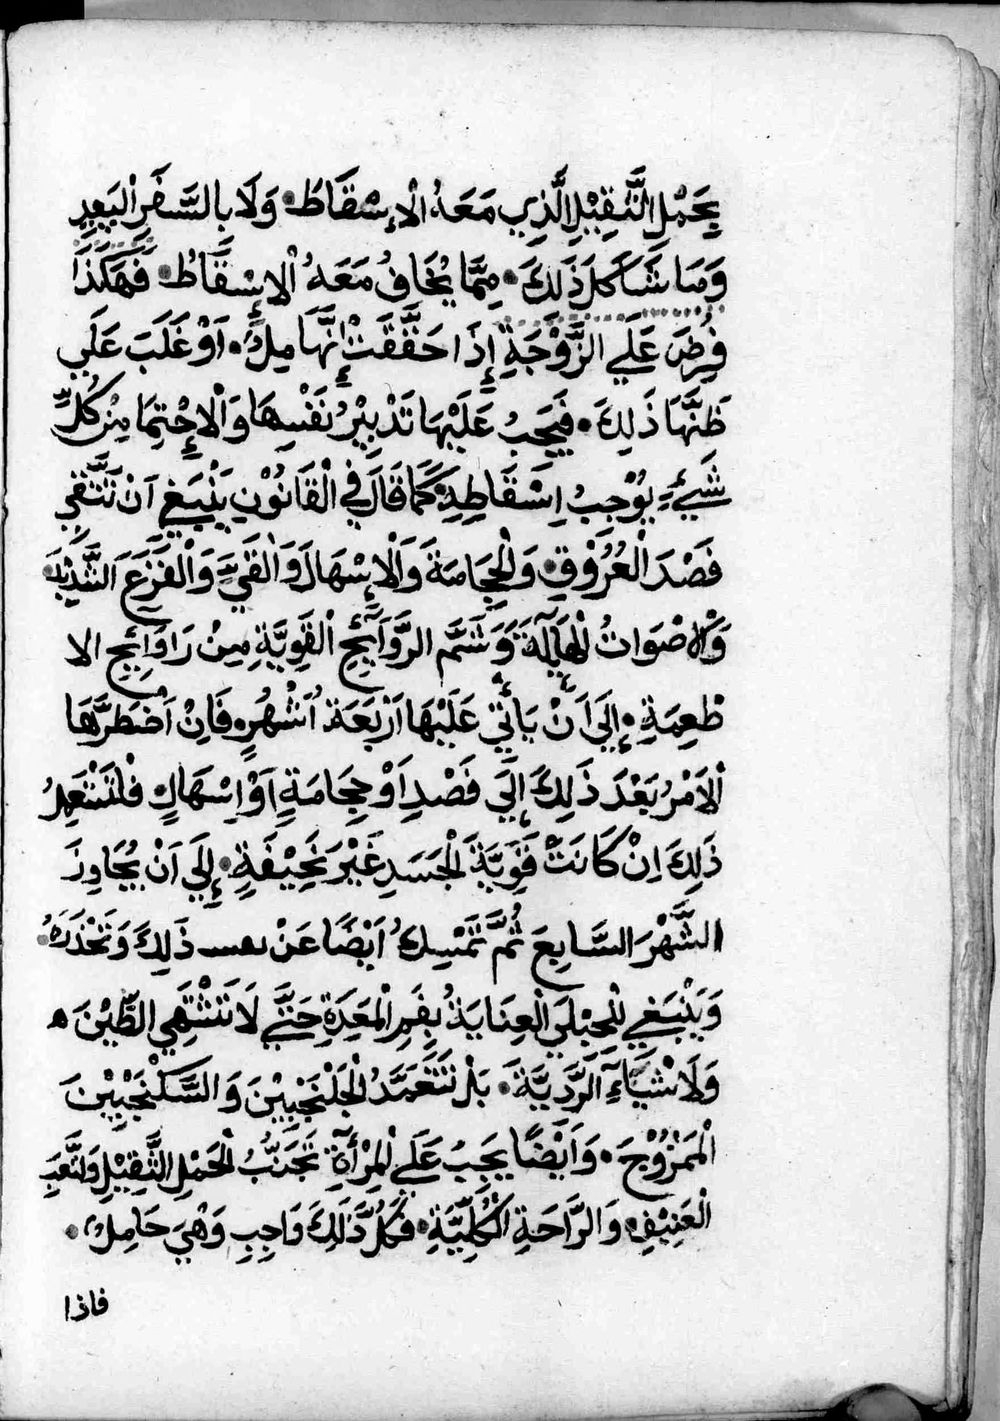 بِحَمْلِ الثَّقِيْلِ الَّذِي مَعَهُ الْاِسْقَاطُ وَلَا بِالسَّفَرِ الْبَعِدِ
وَمَا شَاكَلَ ذَلِكَ مِمَّا يُخَافُ مَعَهُ الْاِسْقَاطُ فَهَكَذَا
فُرِضَ عَلَي الزَّوْجَةِ إِذَا حَقَّقَتْ اِنَّهَا مِلٌ اَوْ غَلَبَ عَلَي
ظَنَّهَا ذَلِكَ فَيَجِبُ عَلَيْهَا تَدْبِيْرُ نَفْسِهَا وَالْاِحْتِمَا مِنْ كُلِّ
شَيْءٍ يُوْجِبُ اِسْقَاطِهِ كَمَا قَالَ فِي الْقَانُوْنِ يَنْبَغِي اَنْ تَتَّقِي
فَصْدَ الْعُرُوْقِ وَالْحِجَامَةَ وَالْاِسْهَالَ وَالْقَيَّ وَالْفَزَعَ الشَّدِيْدَ
وَالْاصْوَاتُ الْهَايِلَةَ وَشَمَّ الرَّوَآئِحِ الْقَوِيَّةِ مِنْ رَاوَائِحِ الا
طْعِمَةِ إِلَي اَنْ يَاْتِيَ عَلَيْهَا اَرْبَعَةُ اَشْهُرٍ فَاِنْ اَضْطَرَّهَا
الْاَمْرُ بَعْدَ ذَلِكَ إِلَي فَصْدٍ اَوْ حِجَامَةٍ اَوْ اِسْهَالٍ فَلْتَسْتَعْمِلُ
ذَلِكَ اِنْ كَانَتْ قَوِيَّةَ الْجَسَدِ غَيْرَ نَحِيْفَةٍ إِلَي اَنْ يُجَاوِزَ
الشَّهْرَ السَّابِعَ ثُمَّ تَمْسِكُ اَيْضًا عَنْ ذَلِكَ وَتَحْذَرَهُ
وَيَنْبَغِي لِلْحُبْلَي الْعِنَايَةُ بِفَمِ الْمَعَدَةِ حَتَّي لَا تَشْتَهِي الطِّيْنَ ه
وَلَاشْيَآءَ الرَّدِيَّةَ بَلْ تَتَعَمَّدُ الْجَلَنْجَبِيْنَ وَالسَّكَنْجَبِيْنَ
الْمَمْزُوْجَ وَاَيْضًا يَجِبُ عَلَي الْمِرْأَةِ تَجَنُّبُ الْحَمْلِ الثَّقِيْلِ وَالتَّعَبِ
الْعَنِيْفِ وَالرَّاحَةِ الْكُلِّيَّةِ فَكُلُّ ذَلِكَ وَاجِبِ وَهْيَ حَامِلٌ
فاذا